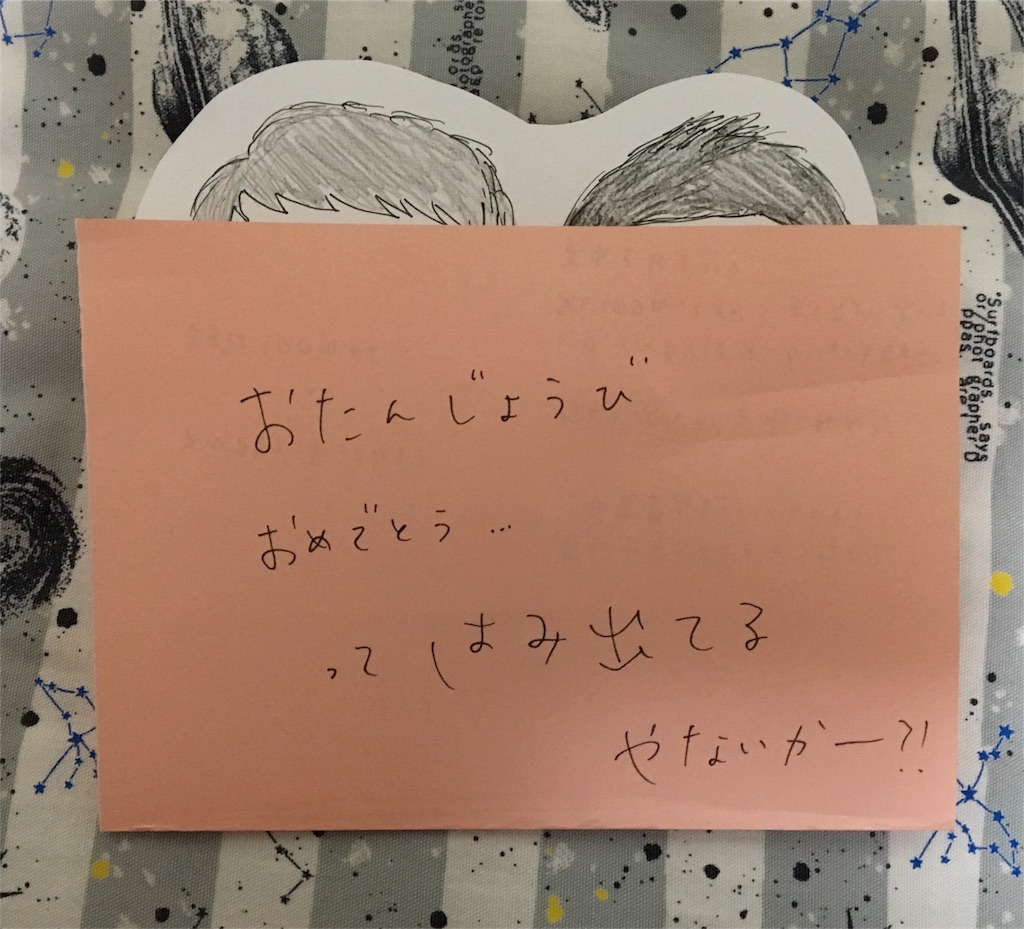 おたんじょうび
おめでとう…
って はみ出てる
やないかー?!
"Surfboards, says